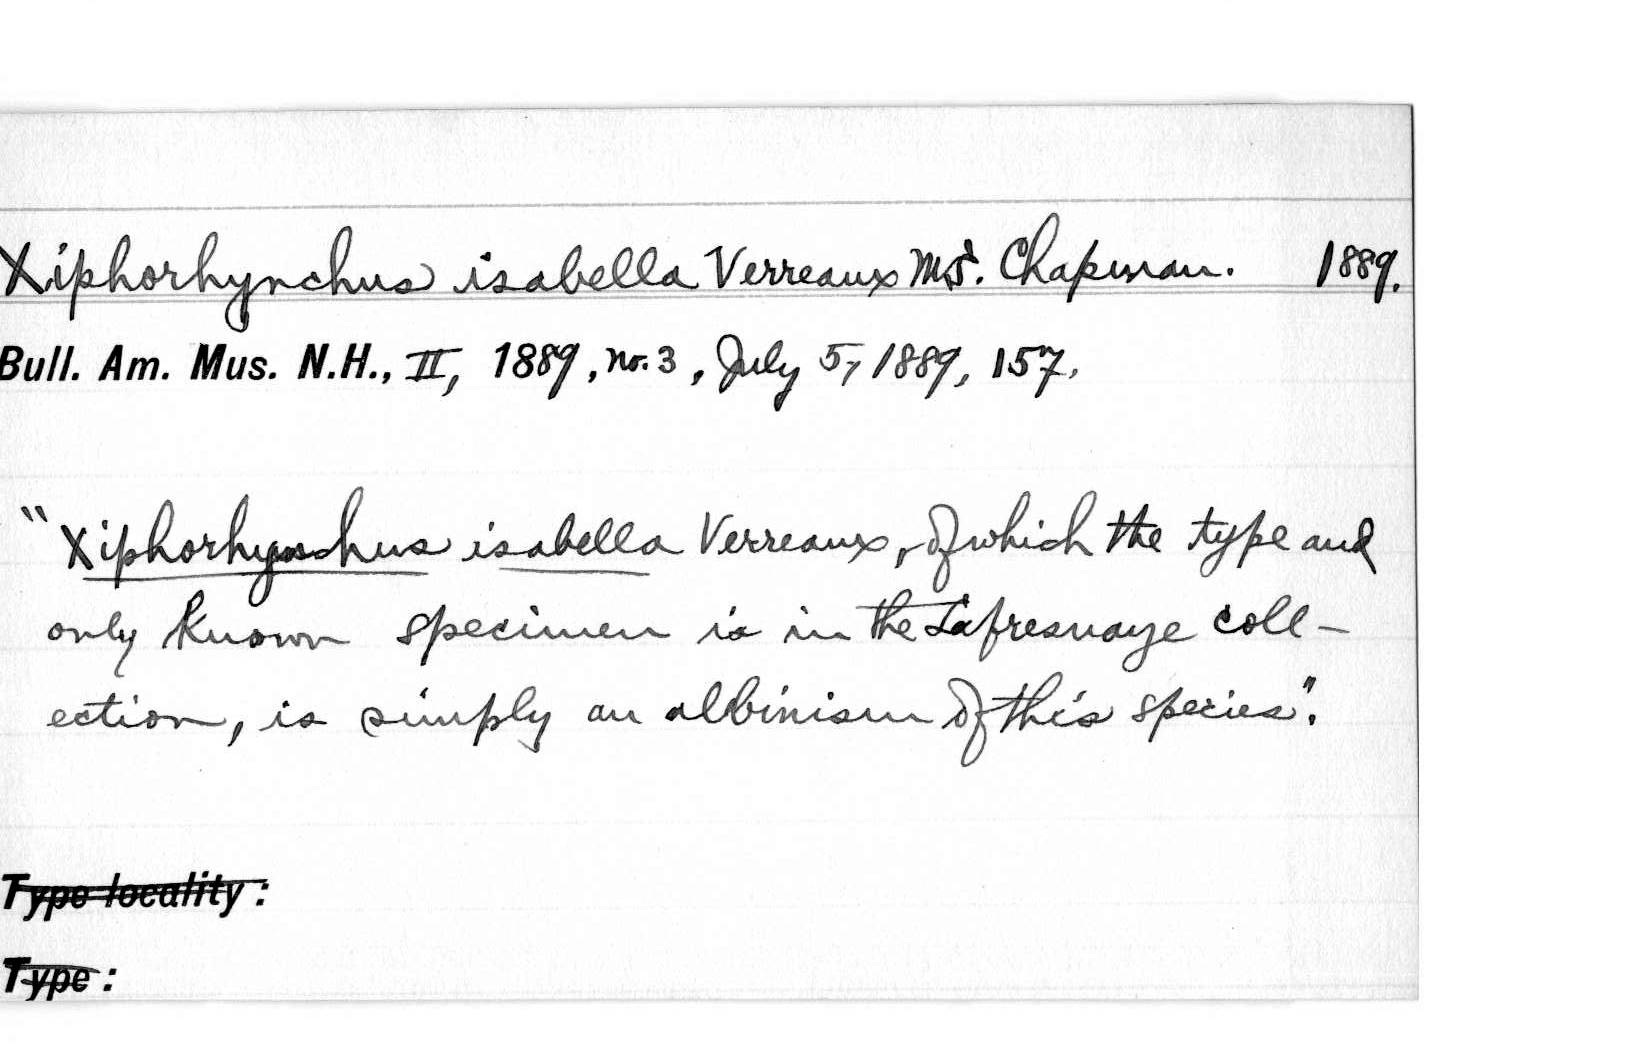 Xiphorhynchus isabella Verreaux MS. Chapman. 1889.
Bull. Am. Mus. N.H., II, 1889, no. 3, July 5, 1889, 157.
"Xiphorhynchus isabella Verreaux, of which the type and
only known specimen is in the Lafresnaye coll-
ection, is simply an albinism of this species".
Type locality:
Type: